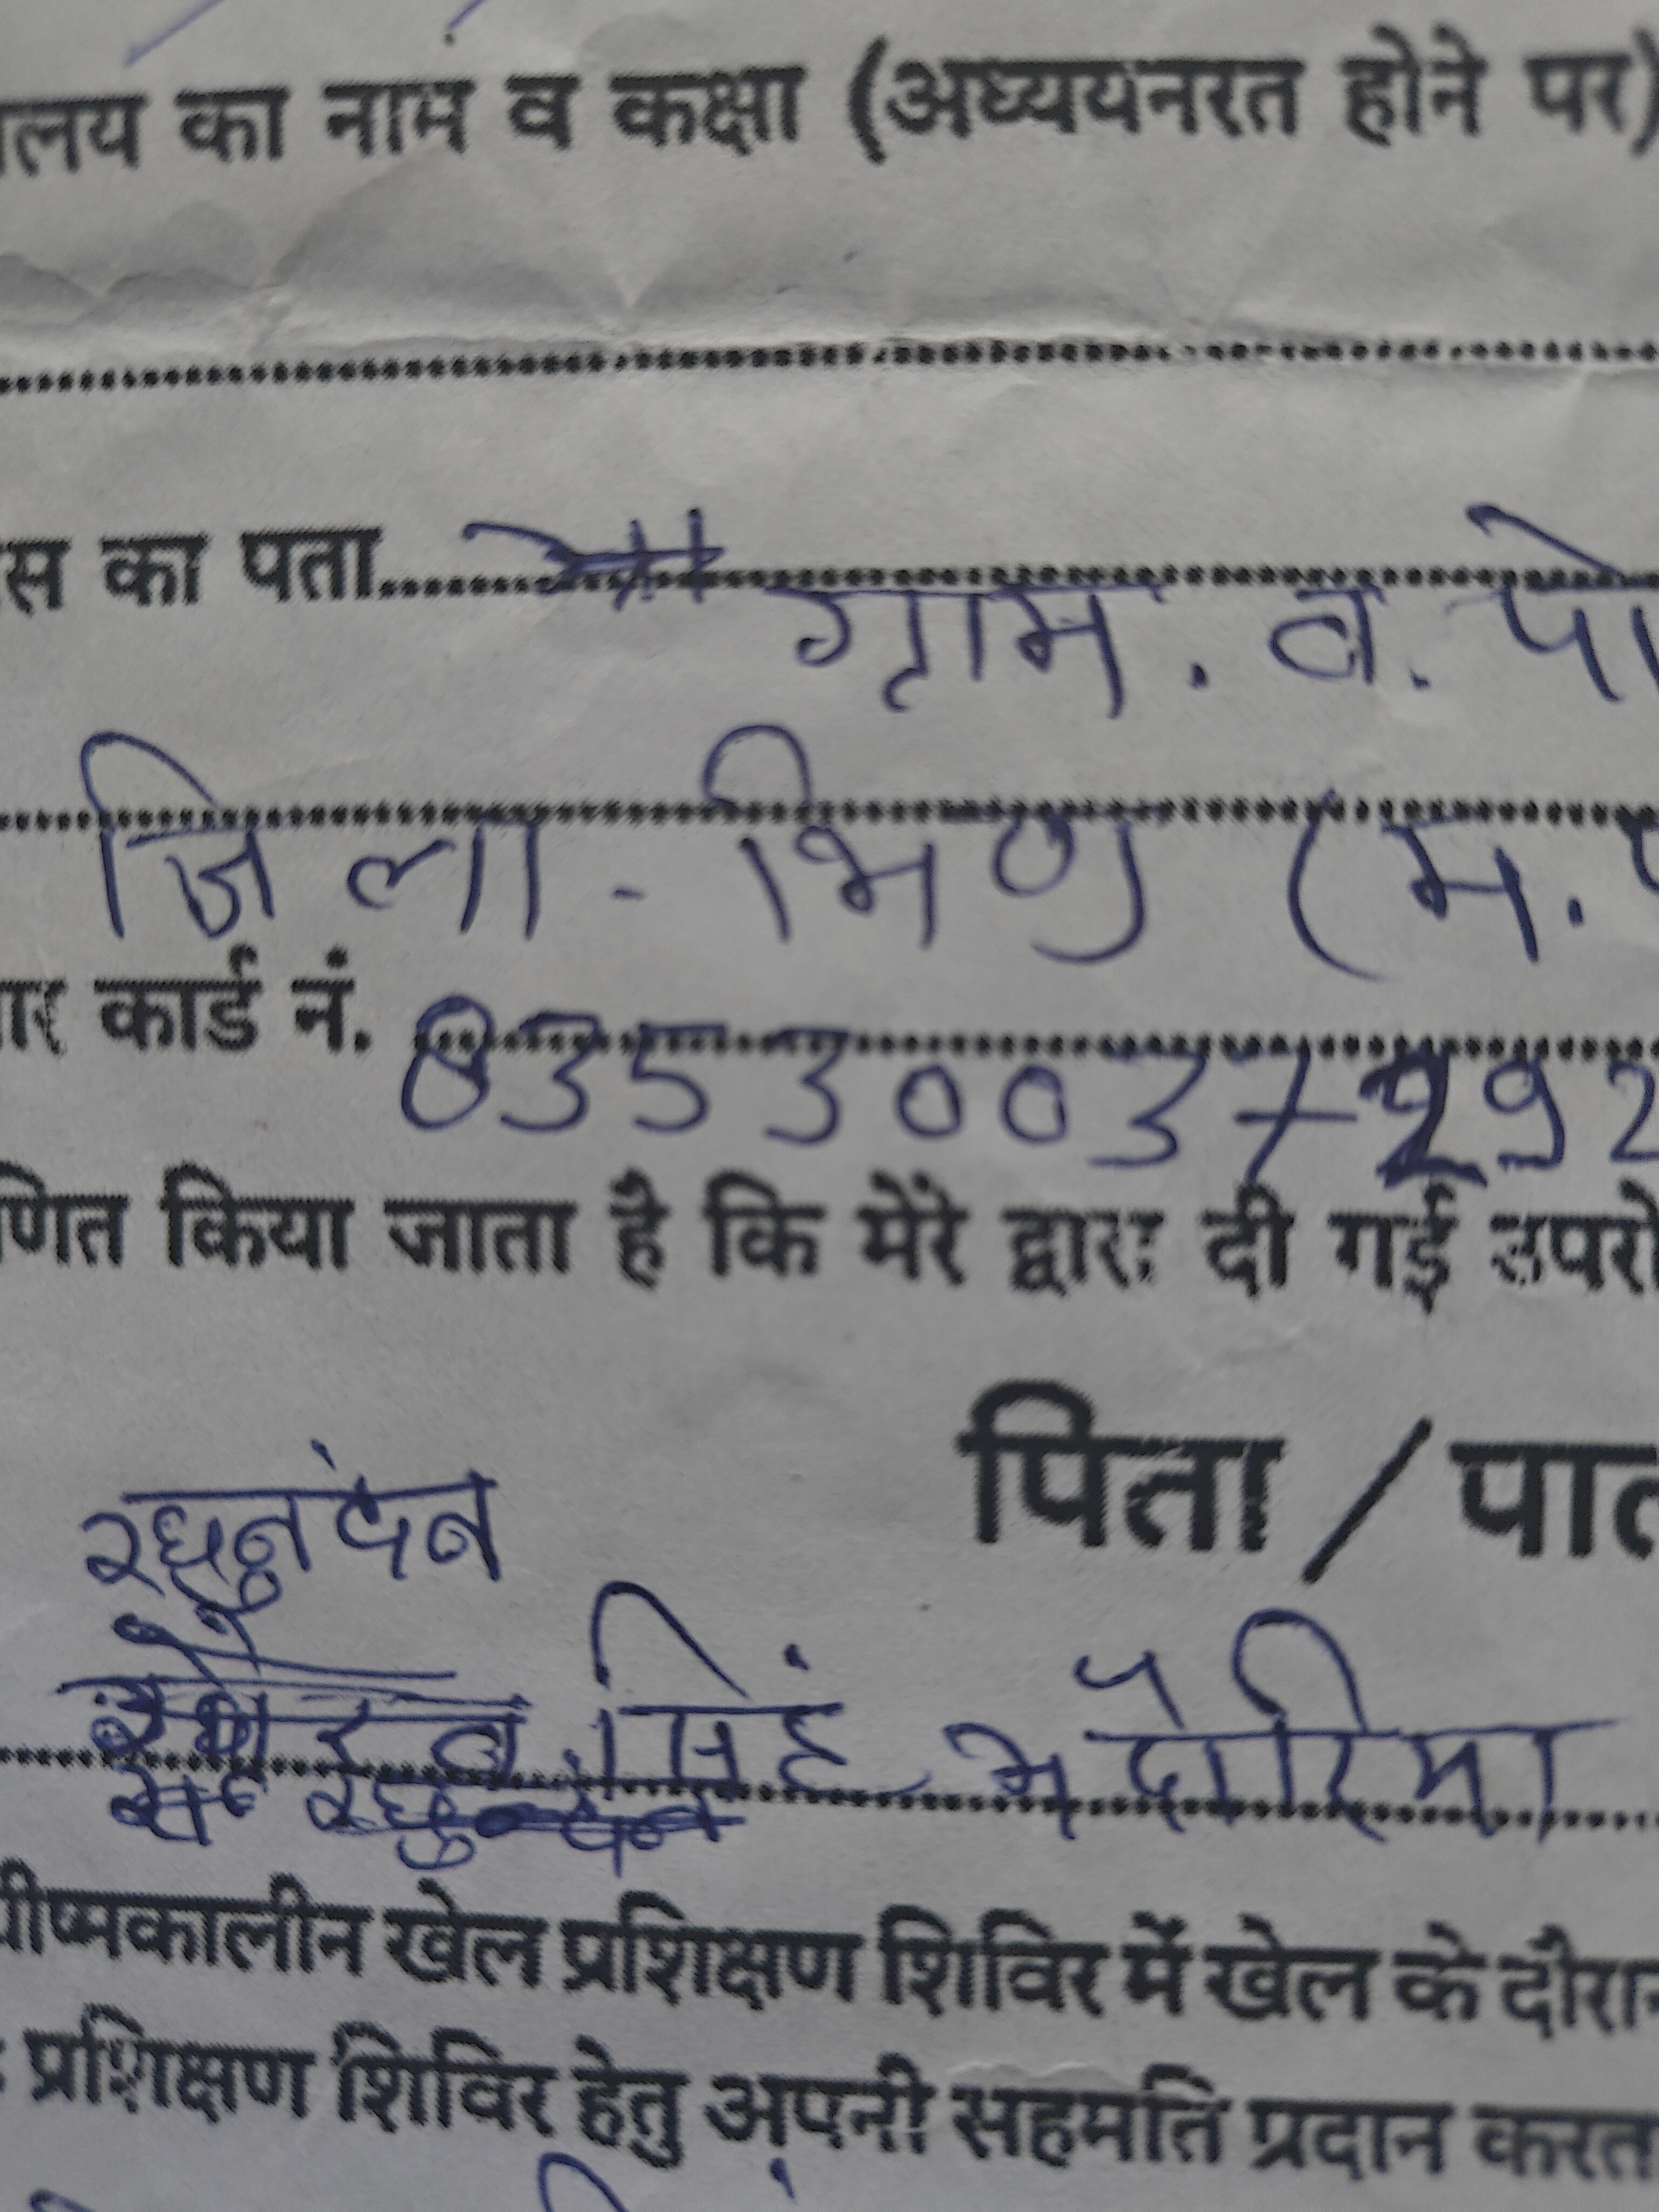 लय का नाम व कक्षा (अध्ययनरत होने पर)
स का पता ग्राम. व. पो
जिला - भिण्ड (म.
र कार्ड नं. 83530037 92
णित किया जाता है कि मेरे द्वारा दी गई उपरो
पिता / पाल
रघुनंदन
सिंह भदौरिया
ग्रीष्मकालीन खेल प्रशिक्षण शिविर में खेल के दौरान
प्रशिक्षण शिविर हेतु अपनी सहमति प्रदान करत